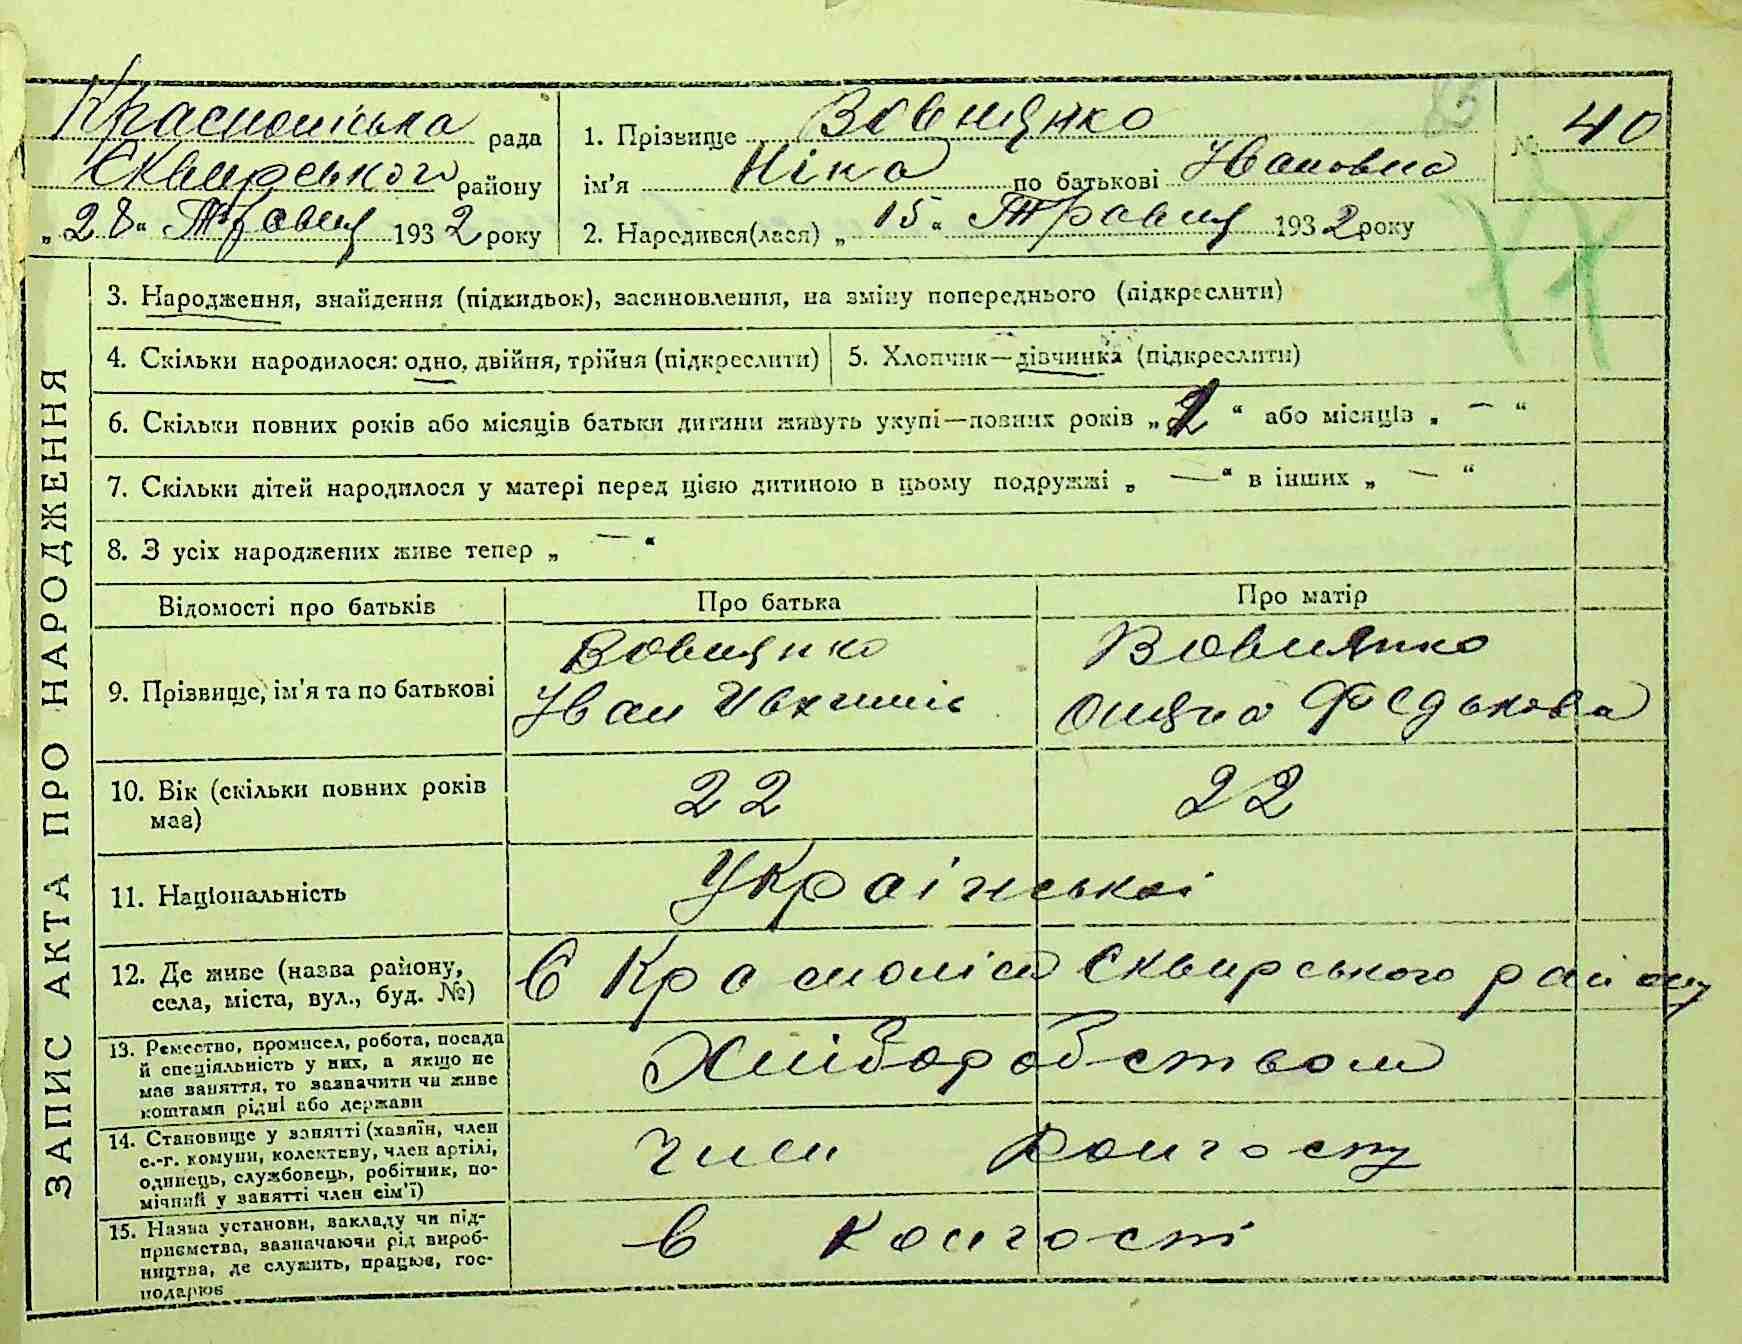 Краснолiська рада
Сквирського району
„28“ Травня 1932 року
1. Прізвище Вовнянко
ім'я Ніна по батькові Івановна
2. Народився(лася) „15“ Травня 1932 року
№ 40
ЗАПИС АКТА ПРО НАРОДЖЕННЯ
3. Народження, знайдення (підкидьок), засиновлення, на зміну попереднього (підкреслити)
4. Скільки народилося: одно, двійня, трійня (підкреслити)
5. Хлопчик—дівчинка (підкреслити)
6. Скільки повних років або місяців батьки дитини живуть укупі—повних років „2“ або місяців „—“
7. Скільки дітей народилося у матері перед цією дитиною в цьому подружжі „—“ в інших „—“
8. З усіх народжених живе тепер „—“
Відомості про батьків
Про батька
Про матір
9. Прізвище, ім'я та по батькові
Вовнянко
Іван
Вовнянко
Федькова
10. Вік (скільки повних років
має)
22
22
11. Національність
Української
12. Де живе (назва району,
села, міста, вул., буд. №)
с Красноліси Сквирського району
13. Ремество, промисел, робота, посада
й спеціяльність у них, а якщо не
має заняття, то зазначити чи живе
коштами рідні або держави
Хліборобством
14. Становище у занятті (хазяїн, член
с.-г. комуни, колективу, член артілі,
одинець, службовець, робітник, по-
мічний у занятті член сім'ї)
Член Колгоспу
15. Назва установи, закладу чи під-
приємства, зазначаючи рід вироб-
ництва, де служить, працює, гос-
подарює
в колгоспі